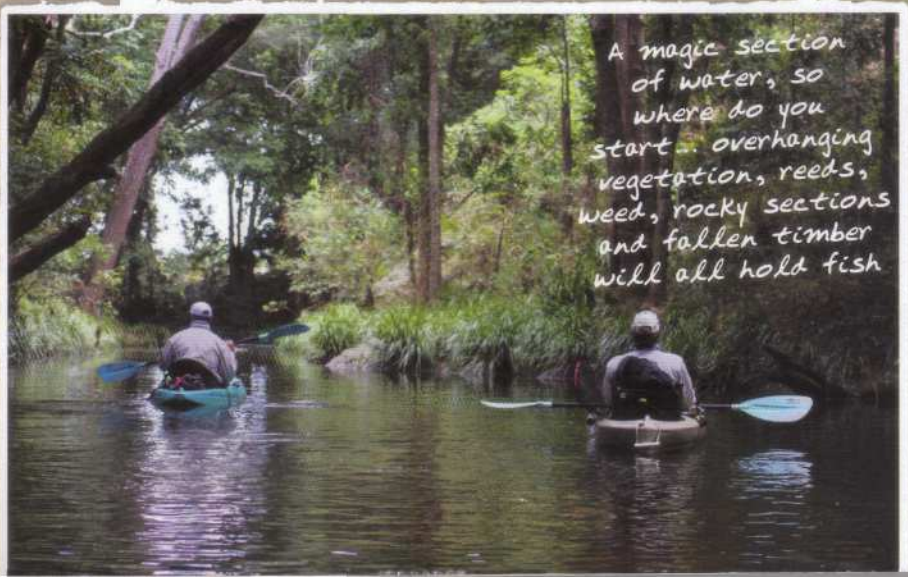 A magic section
of water, so
where do you
start... overhanging
vegetation, reeds,
weed, rocky sections
and fallen timber
will all hold fish